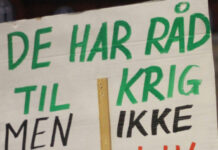 DE HAR RÅD
TIL KRIG
MEN IKKE